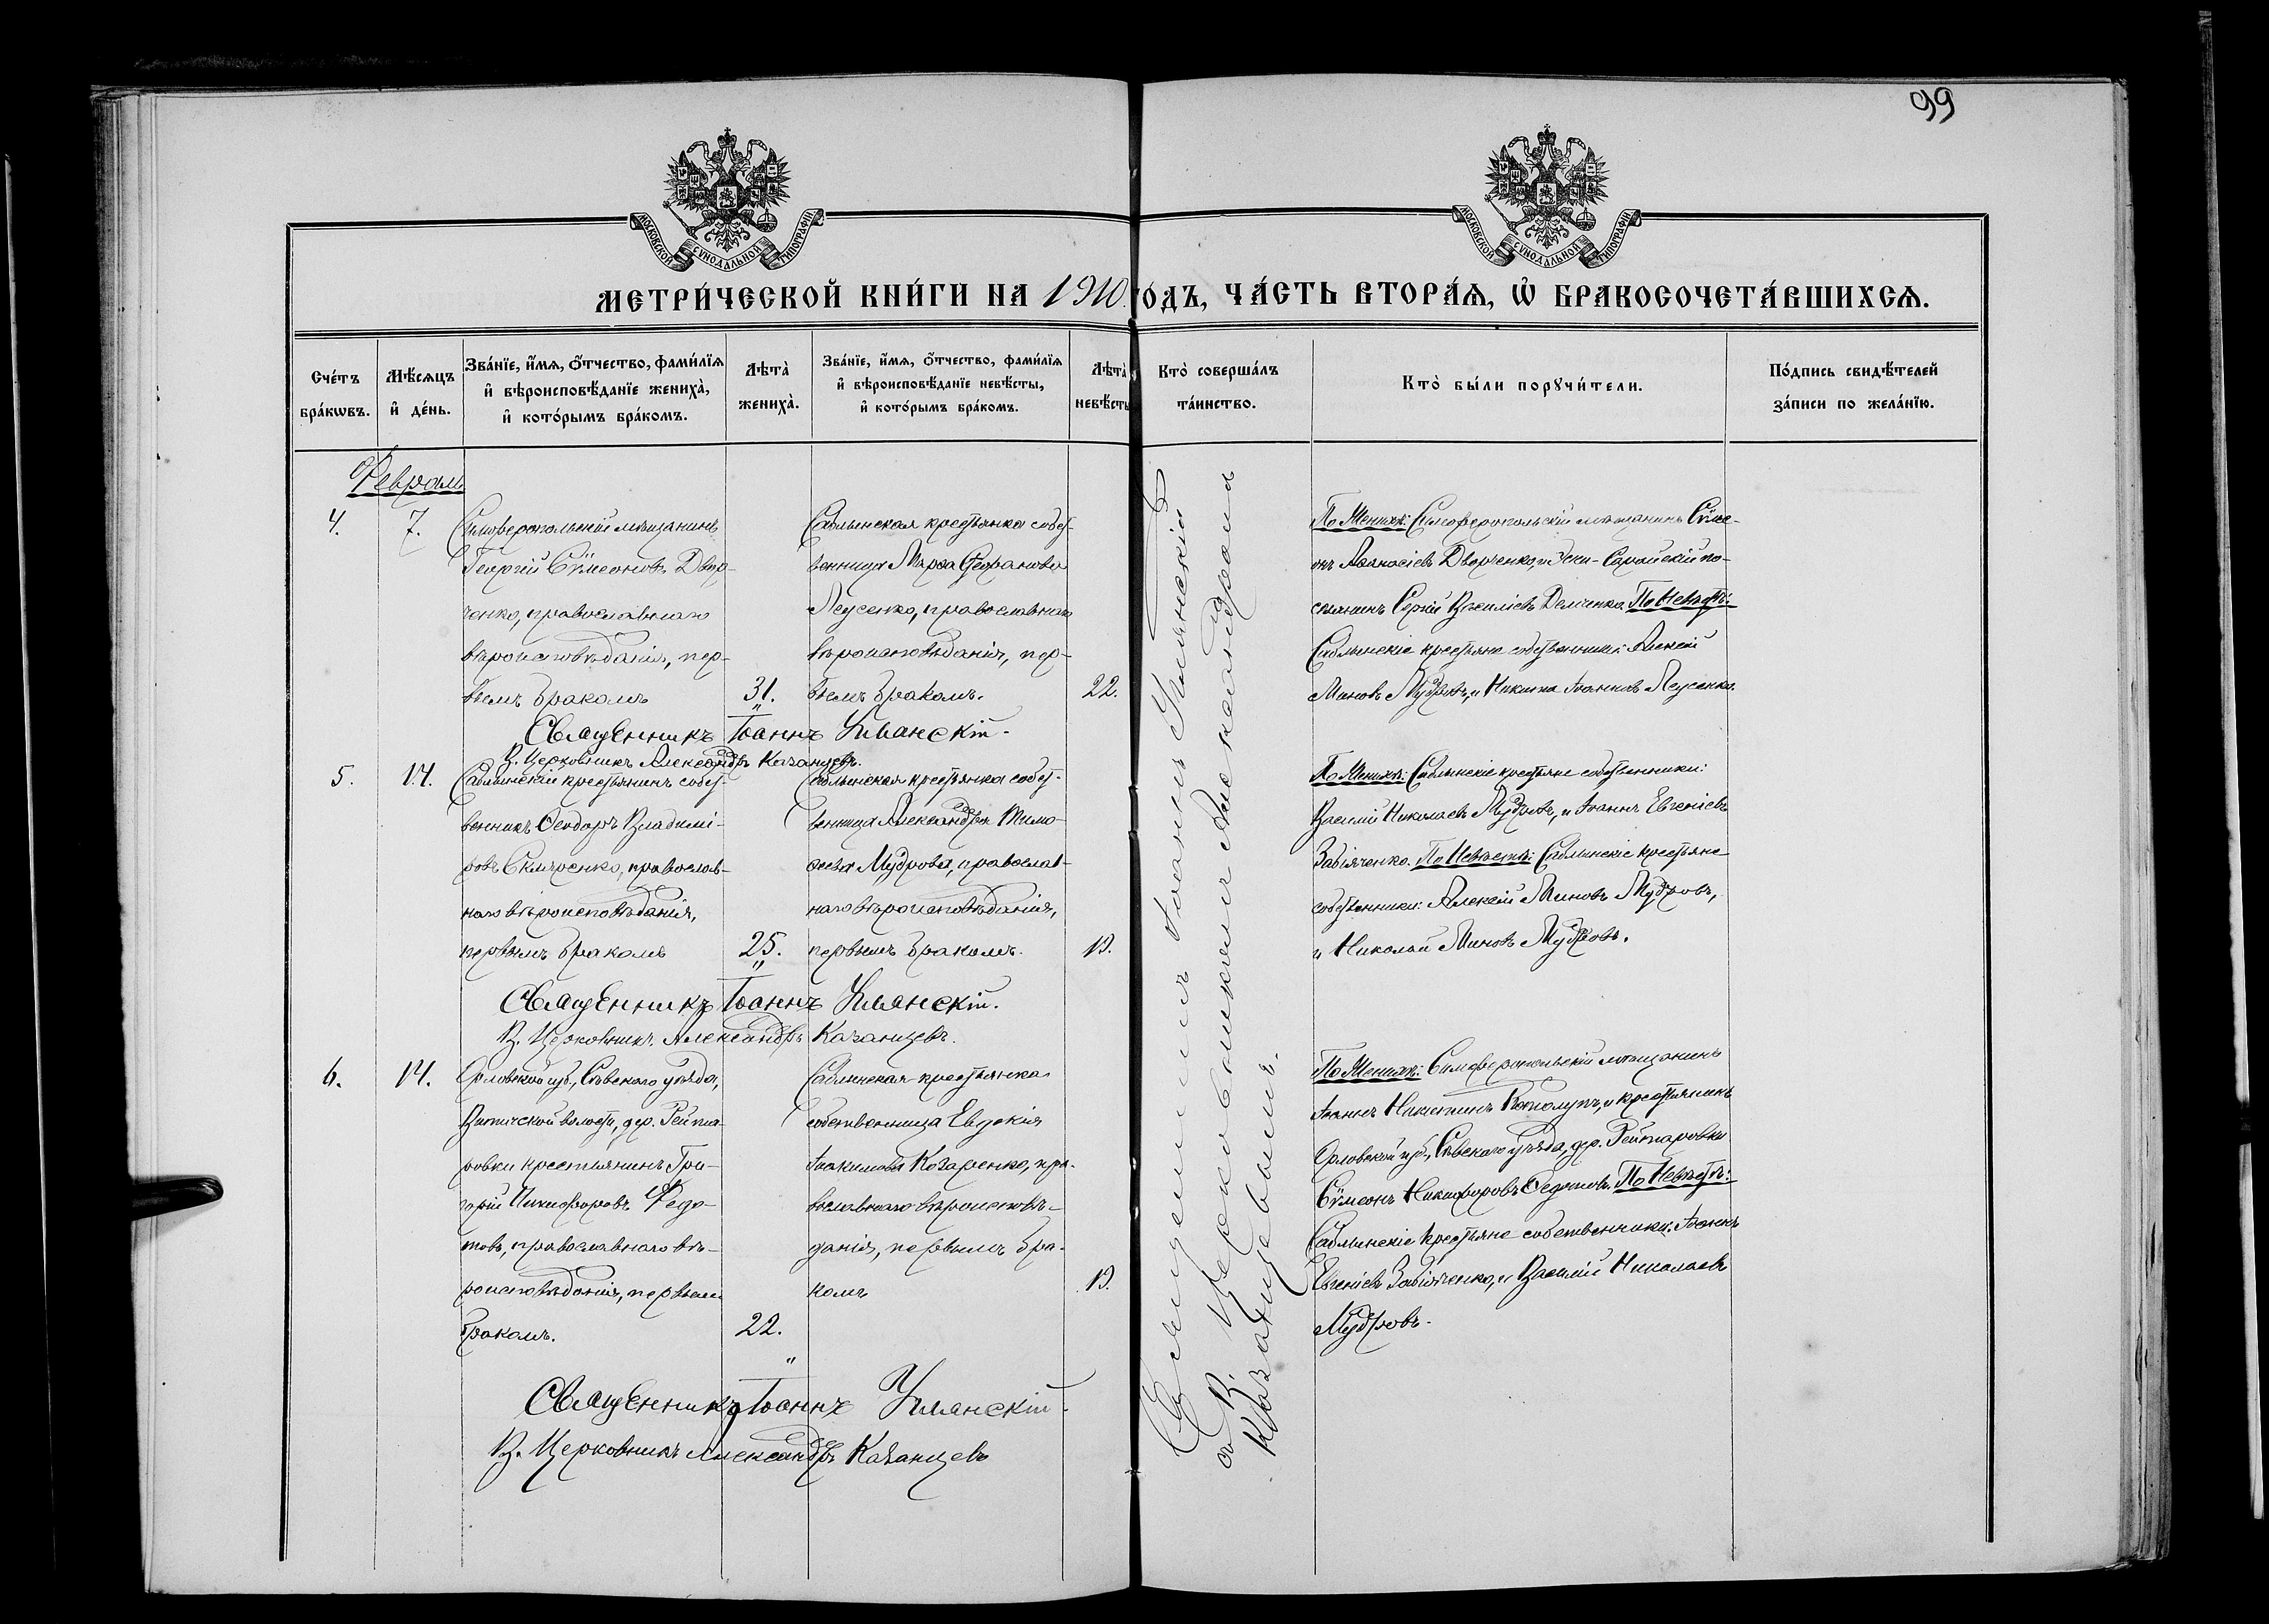 99
МОСКОВСКОЙ СѴНОДАЛЬНОЙ ТИПОГРАФІИ
МОСКОВСКОЙ СѴНОДАЛЬНОЙ ТИПОГРАФІИ
МЕТРИ́ЧЕСКОЙ КНИ́ГИ НА 1910 го́дъ, ЧА́СТЬ ВТОРА́Ѧ, Ѽ БРАКОСОЧЕТА́ВШИХСѦ.
Сче́тъ бра́кѡвъ.
Мѣ́сяцъ и҆ де́нь.
Зва́нїе, и҆́мѧ, ѻ҆́тчество, фами́лїѧ
и҆ вѣроисповѣ́данїе жениха̀,
и҆ кото́рымъ бра́комъ.
Лѣта̀ жениха̀.
Зва́нїе, и҆́мѧ, ѻ҆́тчество, фами́лїѧ
и҆ вѣроисповѣ́данїе невѣ́сты,
и҆ кото́рымъ бра́комъ.
Лѣта̀ невѣ́сты
Кто̀ соверша́лъ та́инство.
Кто̀ бы́ли порꙋчи́тели.
По́дпись свидѣ́телей за́писи по жела́нїю.
Февраль
4.
7.
Симферопольскій мѣщанинъ
Георгій Сѵмеоновъ Двор-
ченко, православнаго
вѣроисповѣданія, пер-
вымъ бракомъ
31.
Саблынская крестьянка собст-
венница Марѳа Стефанова
Леусенко, православнаго
вѣроисповѣданія, пер-
вымъ бракомъ.
22.
По Женихѣ: Симферопольскій мѣщанинъ Сѵме-
онъ Аѳанасіевъ Дворченко, и Эски-Сарайскій по-
селянинъ Сергій Василіевъ Демченко. По Невѣстѣ:
Саблынскіе крестьяне собственники: Алексій
Миновъ Мудровъ, и Никита Іоанновъ Леусенко.
Священникъ Іоаннъ Уманскій.
В. Церковникъ Александръ Казанцевъ.
5.
14.
Саблынскій крестьянинъ собст-
венникъ Ѳеодоръ Владимі-
ровъ Скляренко, православ-
наго вѣроисповѣданія,
первымъ бракомъ
25.
Саблынская крестьянка собст-
венница Александра Тимо-
ѳеева Мудрова, православ-
наго вѣроисповѣданія,
первымъ бракомъ.
19.
По Женихѣ: Саблынскіе крестьяне собственники:
Василій Николаевъ Мудровъ, и Іоаннъ Евгеніевъ
Забіяченко. По Невѣстѣ: Саблынскіе крестьяне
собственники: Алексій Миновъ Мудровъ,
и Николай Миновъ Мудровъ.
Священникъ Іоаннъ Уманскій.
В. Церковникъ Александръ Казанцевъ.
6.
14.
Орловской губ., Сѣвскаго уѣзда,
волости, дер. Рейта-
ровки крестьянинъ Гри-
горій Никифоровъ Федо-
товъ, православнаго вѣ-
роисповѣданія, первымъ
бракомъ.
22.
Саблынская крестьянка
собственница Евдокія
Іоакимова Козаренко, пра-
вославнаго вѣроисповѣ-
данія, первымъ бра-
комъ
19.
По Женихѣ: Симферопольскій мѣщанинъ
Іоаннъ Никитинъ и крестьянинъ
Орловской губ., Сѣвскаго уѣзда, дер. Рейтаровки
Сѵмеонъ Никифоровъ Федотовъ. По Невѣстѣ:
Саблынскіе крестьяне собственники: Іоаннъ
Евгеніевъ Забіяченко, и Василій Николаевъ
Мудровъ.
Священникъ Іоаннъ Уманскій
В. Церковникъ Александръ Казанцевъ
Священникъ Іоаннъ Уманскій
съ В. Церковникомъ Александромъ
Казанцевымъ.